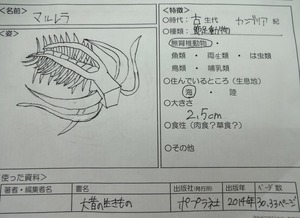 <名前> マルレラ
<姿>
<特徴>
○時代: 古 生代 カンブリア 紀
○種類: 節足動物
無脊椎動物・
魚類 ・ 両生類 ・ は虫類
鳥類 ・ 哺乳類
○住んでいるところ(生息地)
海 ・ 陸
○大きさ
2.5cm
○食性(肉食?草食?)
○その他
使った資料
著者・編集者名 書名 出版社(発行所) 出版年 ページ数
大昔の生きもの ポプラ社 2014年 30,33ページ